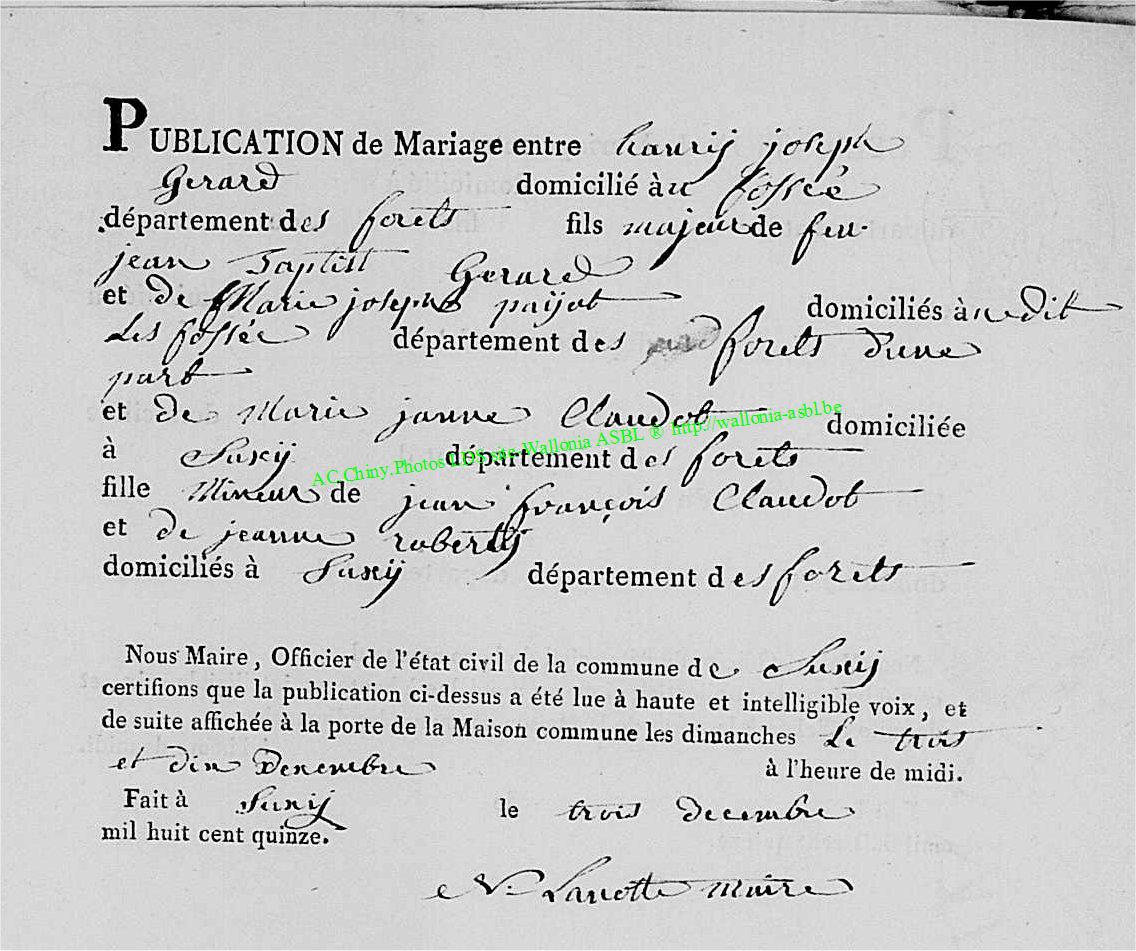 PUBLICATION de Mariage entre hanrij joseph
Gerard domicilié à u fossée
département des forets fils majeur de feu
jean Baptist Gerard
et de Marie joseph paijot domiciliés à udit
Les fossée département des forets d'une
part
et de Marie janne Claudot domiciliée
à Suxij département des forets
fille Mineur de jean françois Claudot
et de jeanne robertij
domiciliés à Suxij département des forets
Nous Maire, Officier de l'état civil de la commune de Suxij
certifions que la publication ci-dessus a été lue à haute et intelligible voix, et
de suite affichée à la porte de la Maison commune les dimanches Le trois
et dix Decembre à l'heure de midi.
Fait à Suxij le trois decembre
mil huit cent quinze.
maire
AC.Chiny.Photos LDS site Wallonia ASBL ® http://wallonia-asbl.be